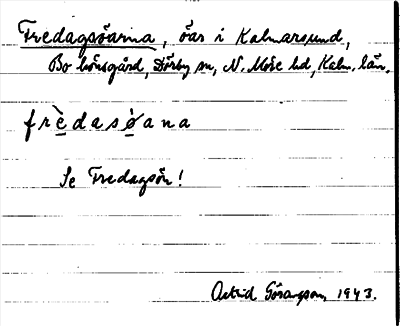 Fredagsöarna, öar i Kalmarsund,
Bo kungsgård, Dörby sn, N. Möre hd, Kalm. län.
frèdasòana
Se Fredagsön!
Astrid Göransson, 1943.